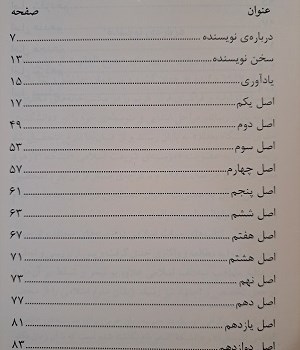 عنوان صفحه
درباره‌ی نویسنده ۷
سخن نویسنده ۱۳
یادآوری ۱۵
اصل یکم ۱۷
اصل دوم ۴۹
اصل سوم ۵۳
اصل چهارم ۵۷
اصل پنجم ۶۱
اصل ششم ۶۳
اصل هفتم ۶۷
اصل هشتم ۷۱
اصل نهم ۷۳
اصل دهم ۷۷
اصل یازدهم ۸۱
اصل دوازدهم ۸۳